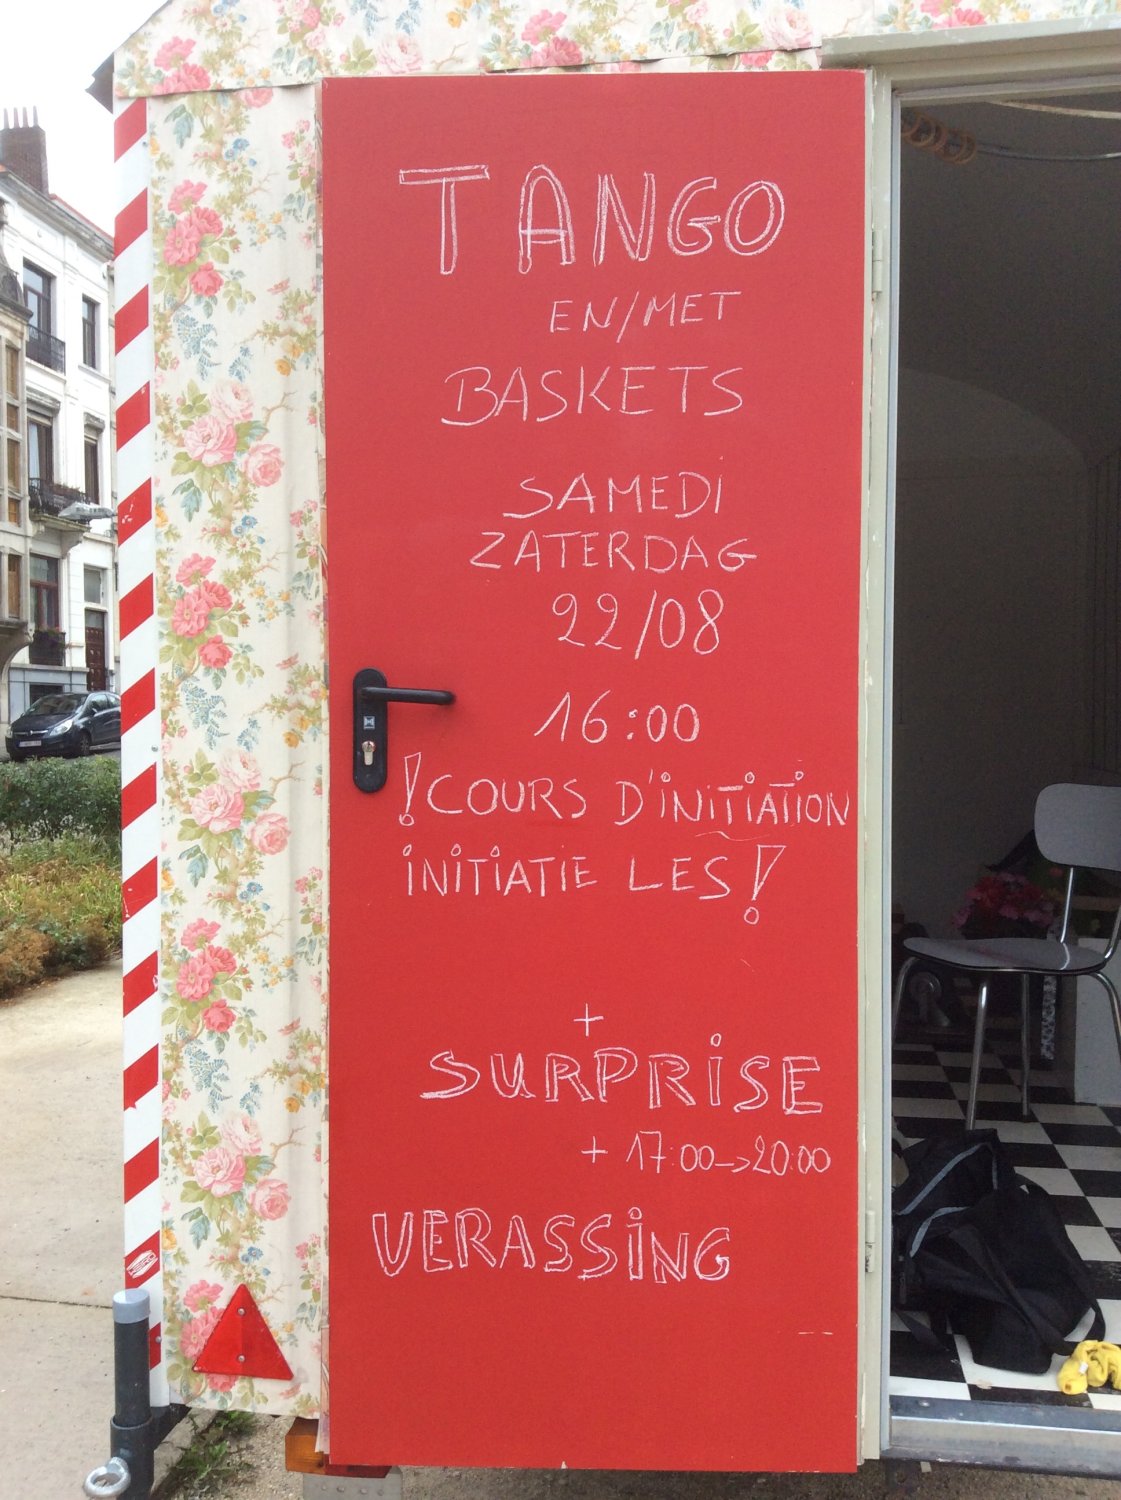 TANGO
EN/MET
BASKETS
SAMEDI
ZATERDAG
22/08
16:00
! COURS D'INITIATION
INITIATIE LES !
+
SURPRISE
+ 17:00->20:00
VERASSING